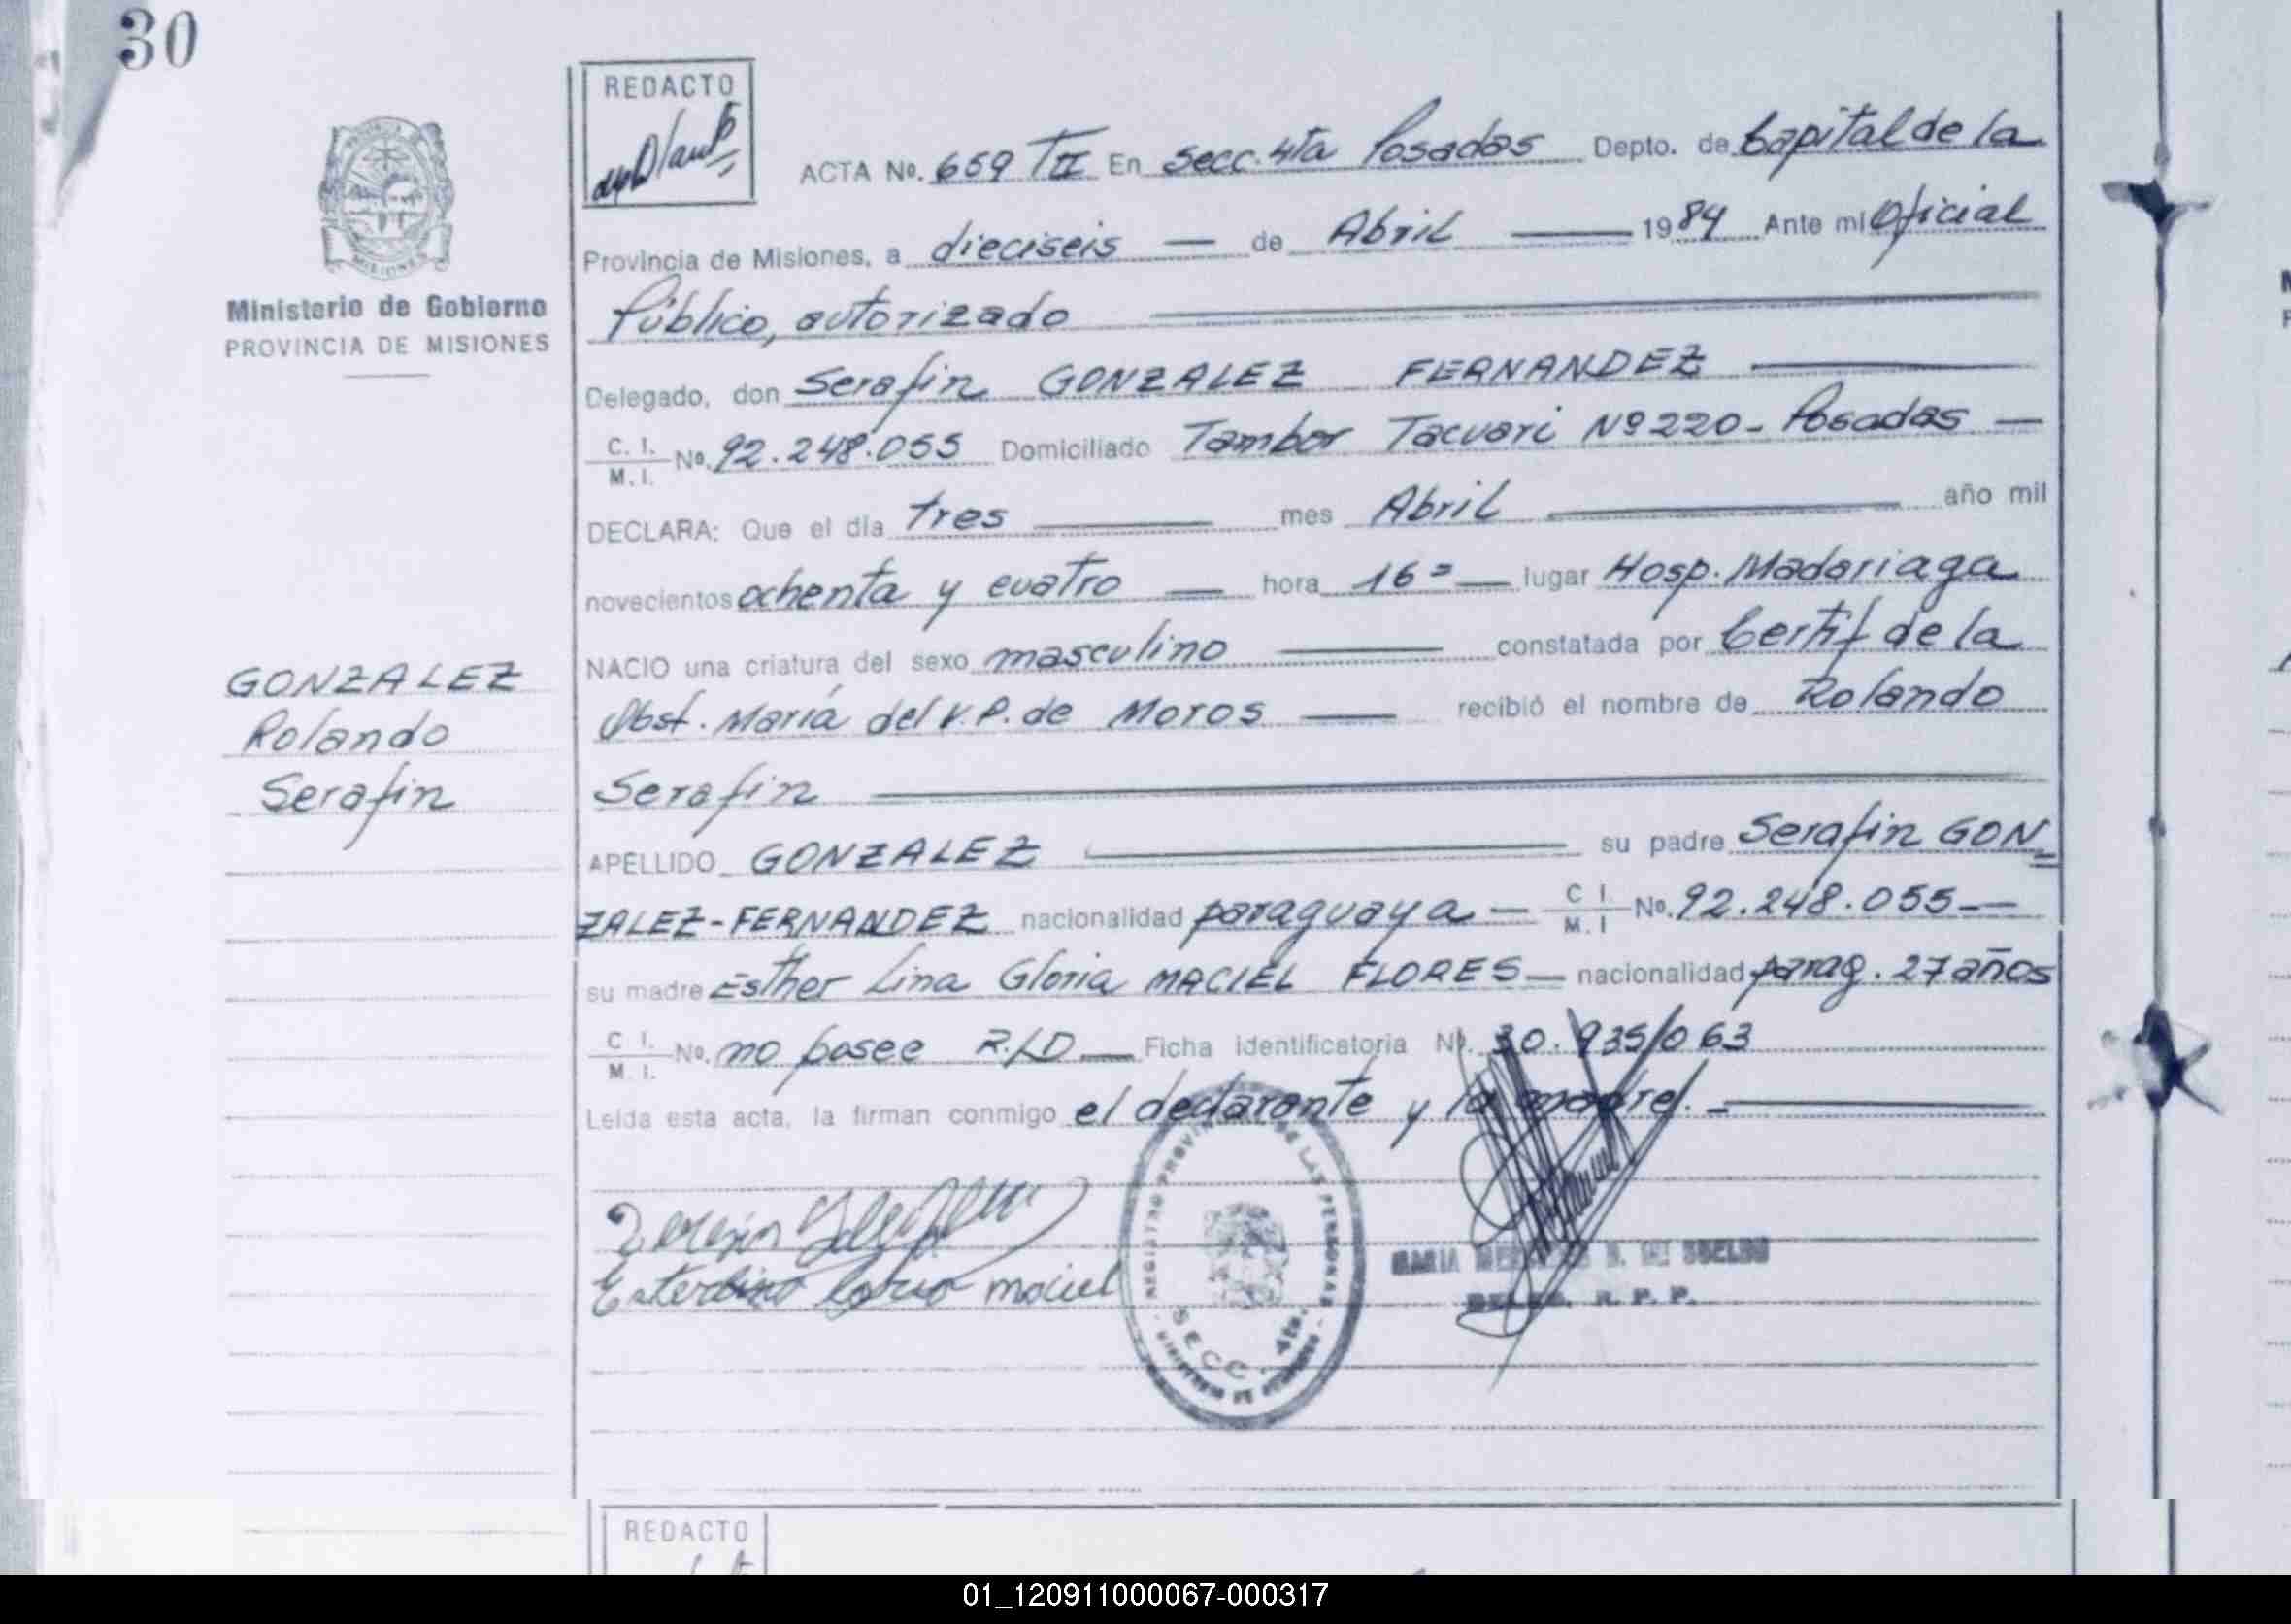 30
REDACTO
ACTA No. 659 TII En Secc. 4ta Posadas Depto. de Capital de la
Provincia de Misiones, a dieciseis — de Abril — 1984 Ante mi Oficial
Ministerio de Gobierno
PROVINCIA DE MISIONES
Público, autorizado
Delegado, don Serafin GONZALEZ FERNANDEZ
C. I. / M. I. No. 92.248.055 Domiciliado Tambor Tacuari Nº 220 - Posadas —
DECLARA: Que el día tres — mes Abril — año mil
novecientos ochenta y cuatro — hora 16 = — lugar Hosp. Madariaga
NACIO una criatura del sexo masculino — constatada por Certif de la
Obst. María del V.P. de MOROS — recibió el nombre de Rolando
Serafin
GONZALEZ
Rolando
Serafin
APELLIDO GONZALEZ — su padre Serafin GON
ZALEZ-FERNANDEZ nacionalidad paraguaya — C I. / M. I No. 92.248.055 —
su madre Esther Lina Gloria MACIEL FLORES — nacionalidad parag. 27 años
C I. / M. I. No. no posee R./D — Ficha identificatoria No. 30.935/063
Leída esta acta, la firman conmigo el declarante y la madre. —
REGISTRO PROVINCIAL DE LAS PERSONAS
SECC. 4ta.
MINISTERIO DE GOBIERNO
maciel
MARIA
DELEG. R. P. P.
REDACTO
01_120911000067-000317